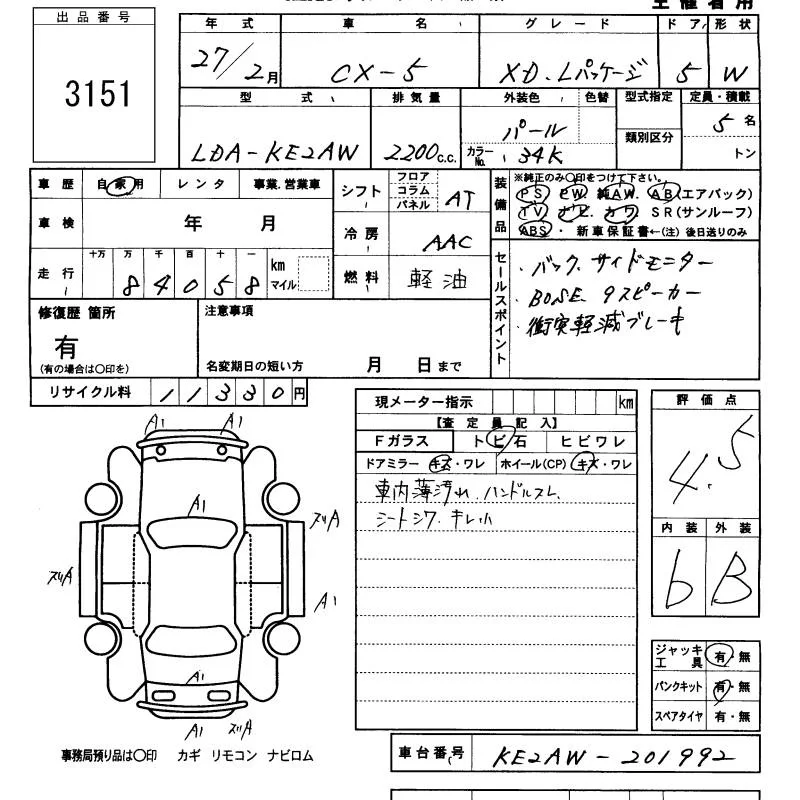 出品番号
3151
年式 車名 グレード ドア 形状
27/2月 CX-5 XD.Lパッケージ 5 W
型式 排気量 外装色 色替 型式指定 定員・積載
LDA-KE2AW 2200c.c. パール 5名
カラーNo. 34K 類別区分 トン
車歴 自家用 レンタ 事業.営業車
シフト フロア コラム パネル AT
装備品 ※純正のみ〇印をつけて下さい。
PS PW. 純AW. AB(エアバック)
TV ナビ. カワ SR(サンルーフ)
ABS・ 新車保証書←(注) 後日送りのみ
車検 年 月
冷房 AAC
走行 十万 万 千 百 十 一 km マイル
84058
燃料 軽油
セールスポイント
・バック.サイドモニター
・BOSE.9スピーカー
・衝突軽減ブレーキ
修復歴 箇所
有
(有の場合は〇印を)
注意事項
名変期日の短い方 月 日まで
リサイクル料 11330円
現メーター指示 km
【査定員記入】
Fガラス トビ石 ヒビワレ
ドアミラー キズ・ワレ ホイール(CP) キズ・ワレ
車内薄汚れ.ハンドルスレ
シートシワ.キレ小
評価点
4.5
内装 外装
b B
A1 A1
A1
ズリA
ズリA
A1
A1
A1 ズリA
ジャッキ工具 有・無
パンクキット 有・無
スペアタイヤ 有・無
事務局預り品は〇印 カギ リモコン ナビロム
車台番号 KE2AW-201992